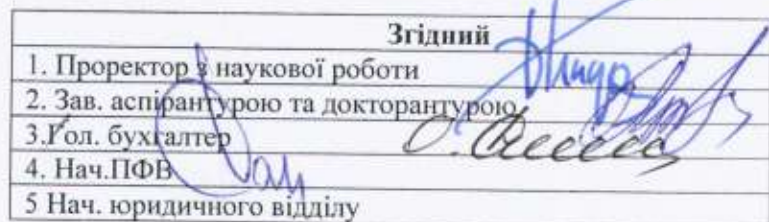 Згідний
1. Проректор з наукової роботи
2. Зав. аспірантурою та докторантурою
3.Гол. бухгалтер
4. Нач.ПФВ
5 Нач. юридичного відділу